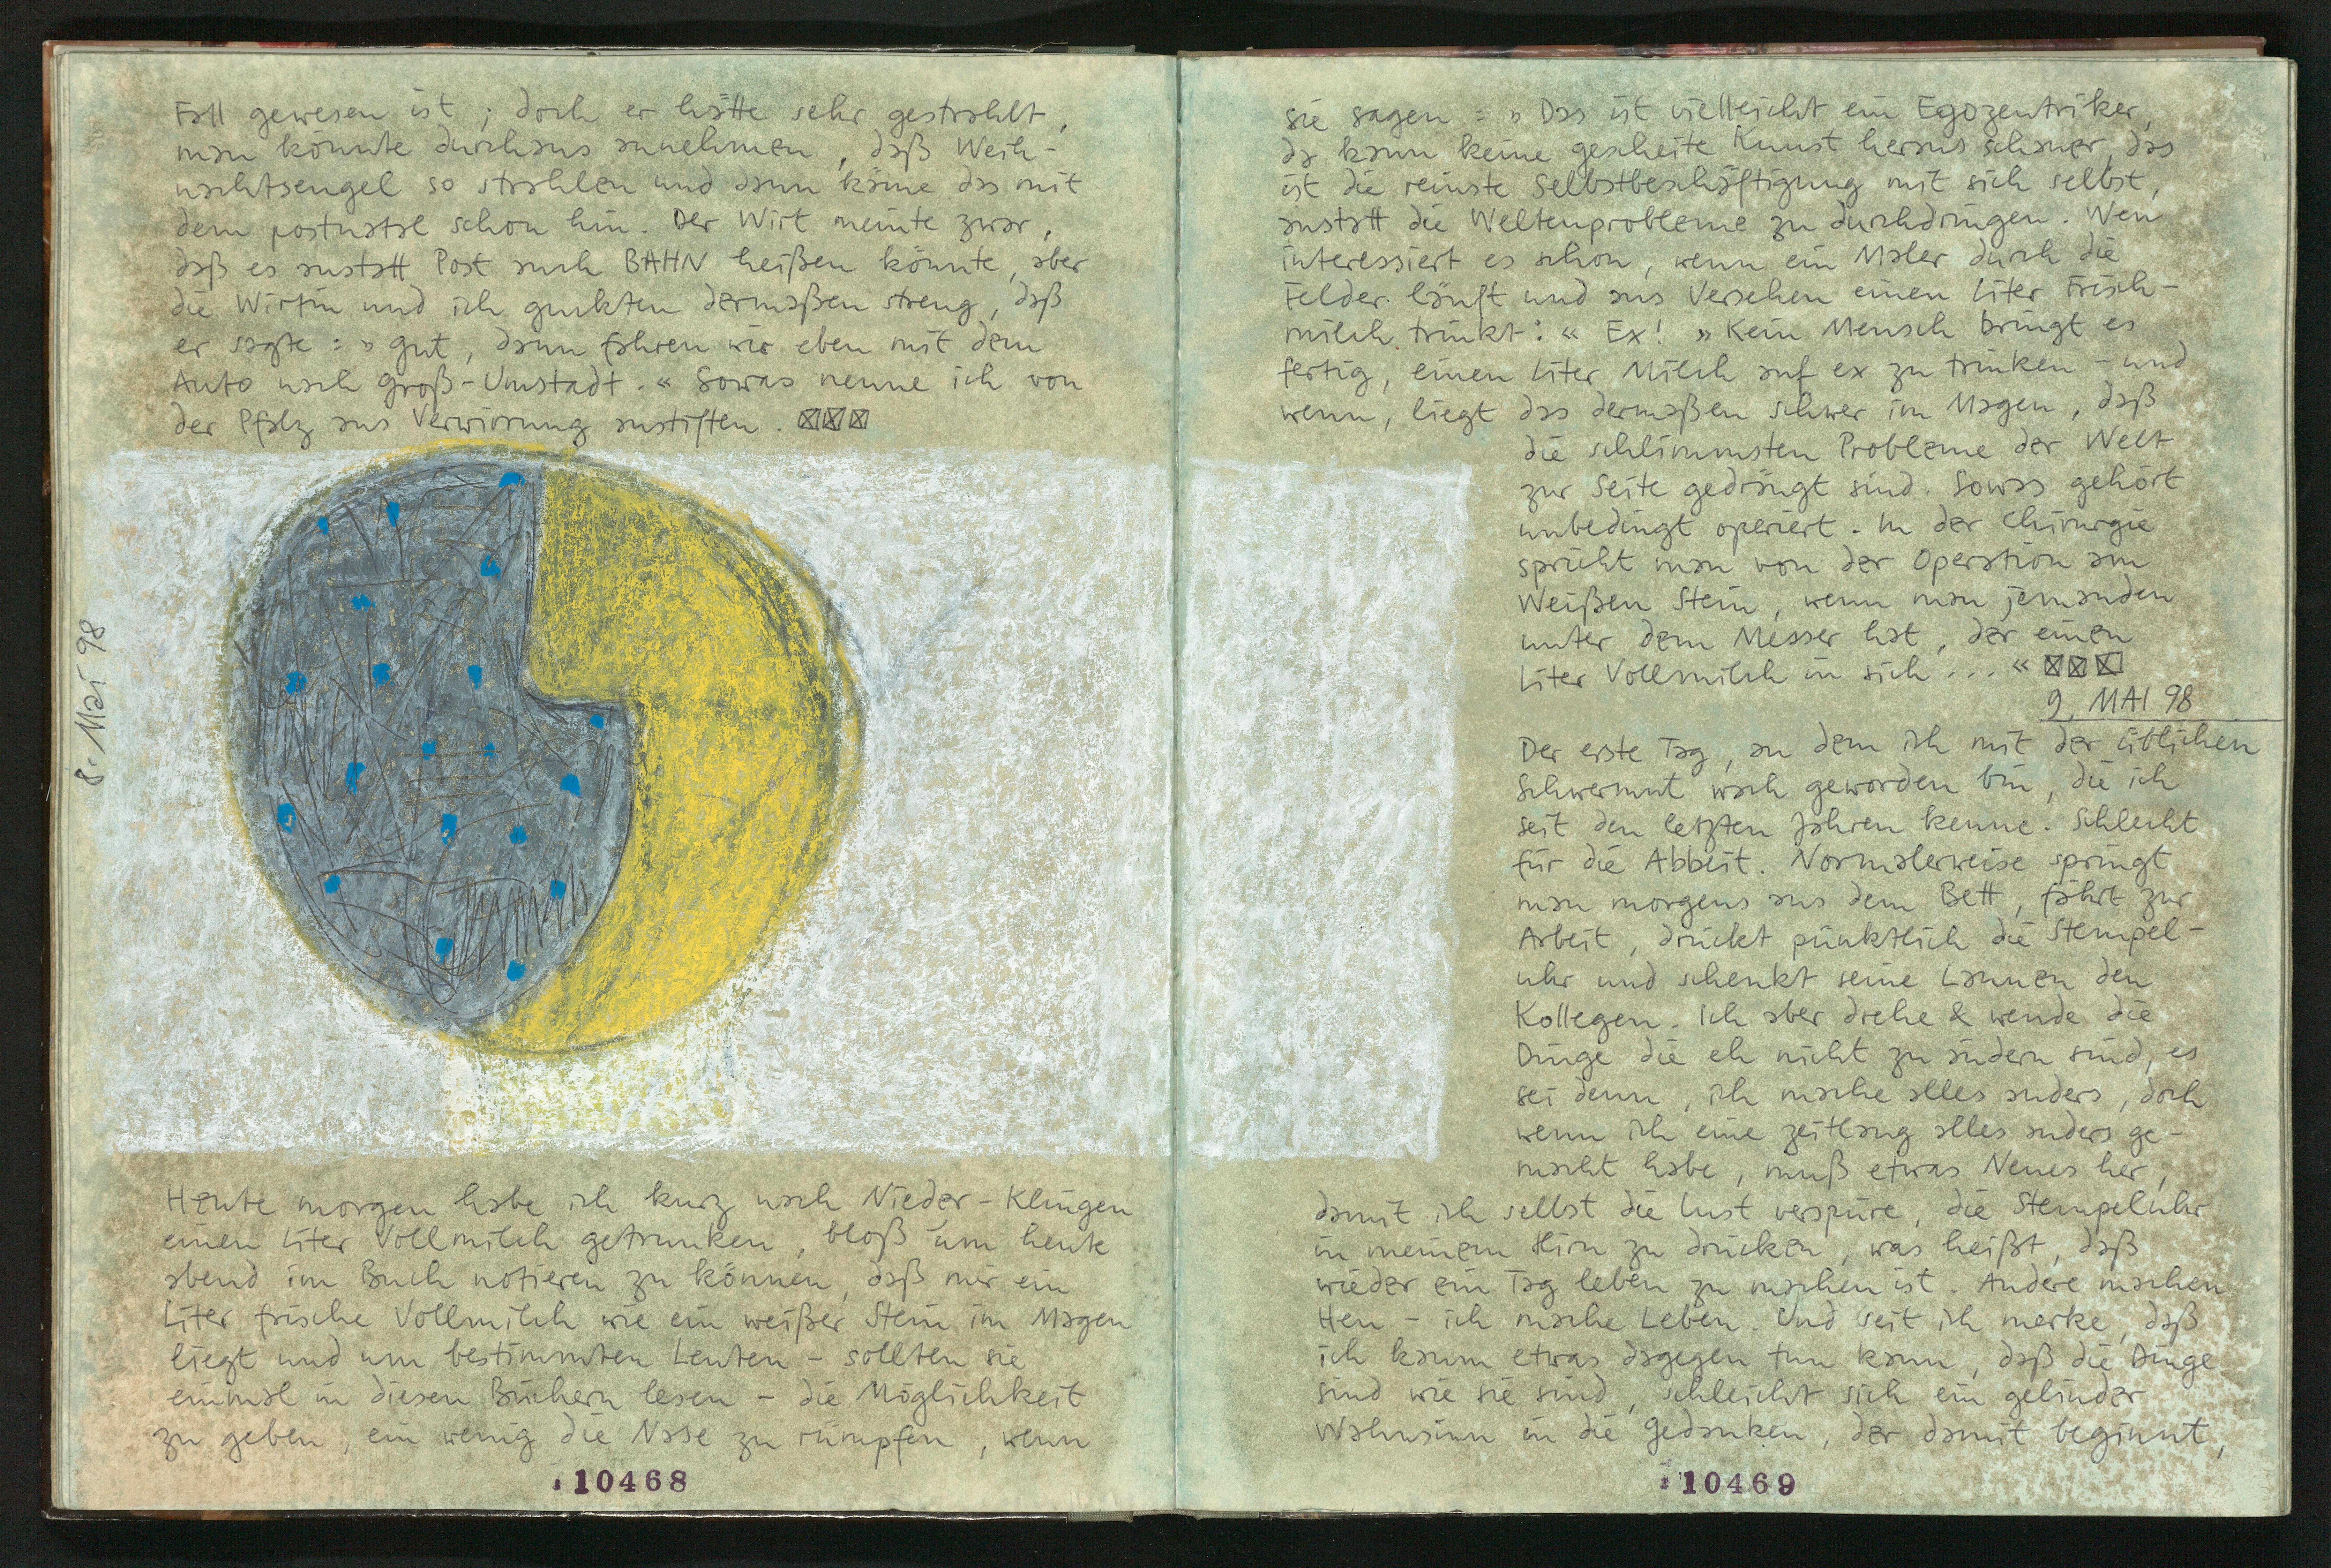 Fall gewesen ist; doch er hätte sehr gestrahlt,
man könnte durchaus annehmen, daß Weih-
nachtsengel so strahlen und dann käme das mit
dem postnatal schon hin. Der Wirt meinte zwar,
daß es anstatt Post auch BAHN heißen könnte, aber
die Wirtin und ich guckten dermaßen streng, daß
er sagte: » gut, dann fahren wir eben mit dem
Auto nach Groß-Umstadt. « Sowas nenne ich von
der Pfalz aus Verwirrung anstiften. ☒☒☒
8. Mai 98
Heute morgen habe ich kurz nach Nieder-Klingen
einen Liter Vollmilch getrunken, bloß um heute
abend im Buch notieren zu können, daß mir ein
Liter frische Vollmilch wie ein weißer Stein im Magen
liegt und um bestimmten Leuten - sollten sie
einmal in diesen Büchern lesen - die Möglichkeit
zu geben, ein wenig die Nase zu rümpfen, wenn
10468
sie sagen: » Das ist vielleicht ein Egozentriker,
da kann keine gescheite Kunst heraus schauen, das
ist die reinste Selbstbeschäftigung mit sich selbst,
anstatt die Weltenprobleme zu durchdringen. Wen
interessiert es schon, wenn ein Maler durch die
Felder läuft und aus Versehen einen Liter Frisch-
milch trinkt: « Ex! » Kein Mensch bringt es
fertig, einen Liter Milch auf ex zu trinken - und
wenn, liegt das dermaßen schwer im Magen, daß
die schlimmsten Probleme der Welt
zur Seite gedrängt sind. Sowas gehört
unbedingt operiert. In der Chirurgie
spricht man von der Operation am
Weißen Stein, wenn man jemanden
unter dem Messer hat, der einen
Liter Vollmilch in sich ... « ☒☒☒
9. MAI 98
Der erste Tag, an dem ich mit der üblichen
Schwermut wach geworden bin, die ich
seit den letzten Jahren kenne. Schlecht
für die Abbeit. Normalerweise springt
man morgens aus dem Bett, fährt zur
Arbeit, drückt pünktlich die Stempel-
uhr und schenkt seine Launen den
Kollegen. Ich aber drehe & wende die
Dinge die eh nicht zu ändern sind, es
sei denn, ich mache alles anders, doch
wenn ich eine zeitlang alles anders ge-
macht habe, muß etwas Neues her,
damit ich selbst die Lust verspüre, die Stempeluhr
in meinem Hirn zu drücken, was heißt, daß
wieder ein Tag leben zu machen ist. Andere machen
Heu - ich mache Leben. Und seit ich merke, daß
ich kaum etwas dagegen tun kann, daß die Dinge
sind wie sie sind, schleicht sich ein gelinder
Wahnsinn in die Gedanken, der damit beginnt,
10469